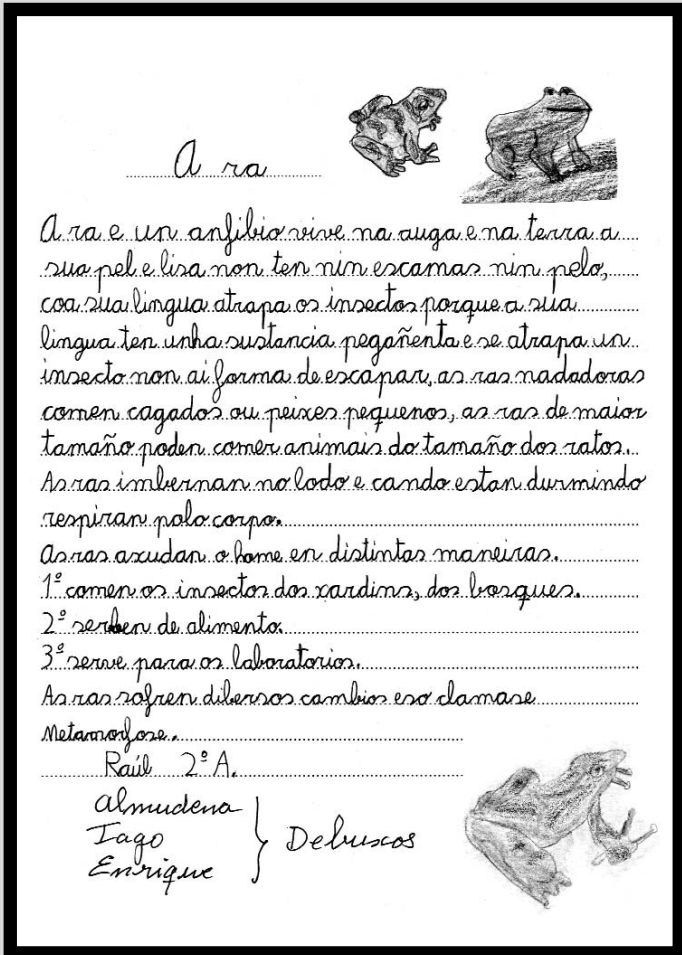 A ra
A ra e un anfibio vive na auga e na terra a
sua pel e lisa non ten nin escamas nin pelo,
coa sua lingua atrapa os insectos porque a sua
lingua ten unha sustancia pegañenta e se atrapa un
insecto non ai forma de escapar, as ras nadadoras
comen cagados ou peixes pequenos, as ras de maior
tamaño poden comer animais do tamaño dos ratos.
As ras imbernan no lodo e cando estan durmindo
respiran polo corpo.
as ras axudan o home en distintas maneiras.
1º comen os insectos dos xardins, dos bosques.
2º serben de alimento.
3º serve para os laboratorios.
As ras sofren dibersos cambios eso clamase
Metamorfose.
Raúl 2º A.
Almudena
Iago
Enrique
Debuxos